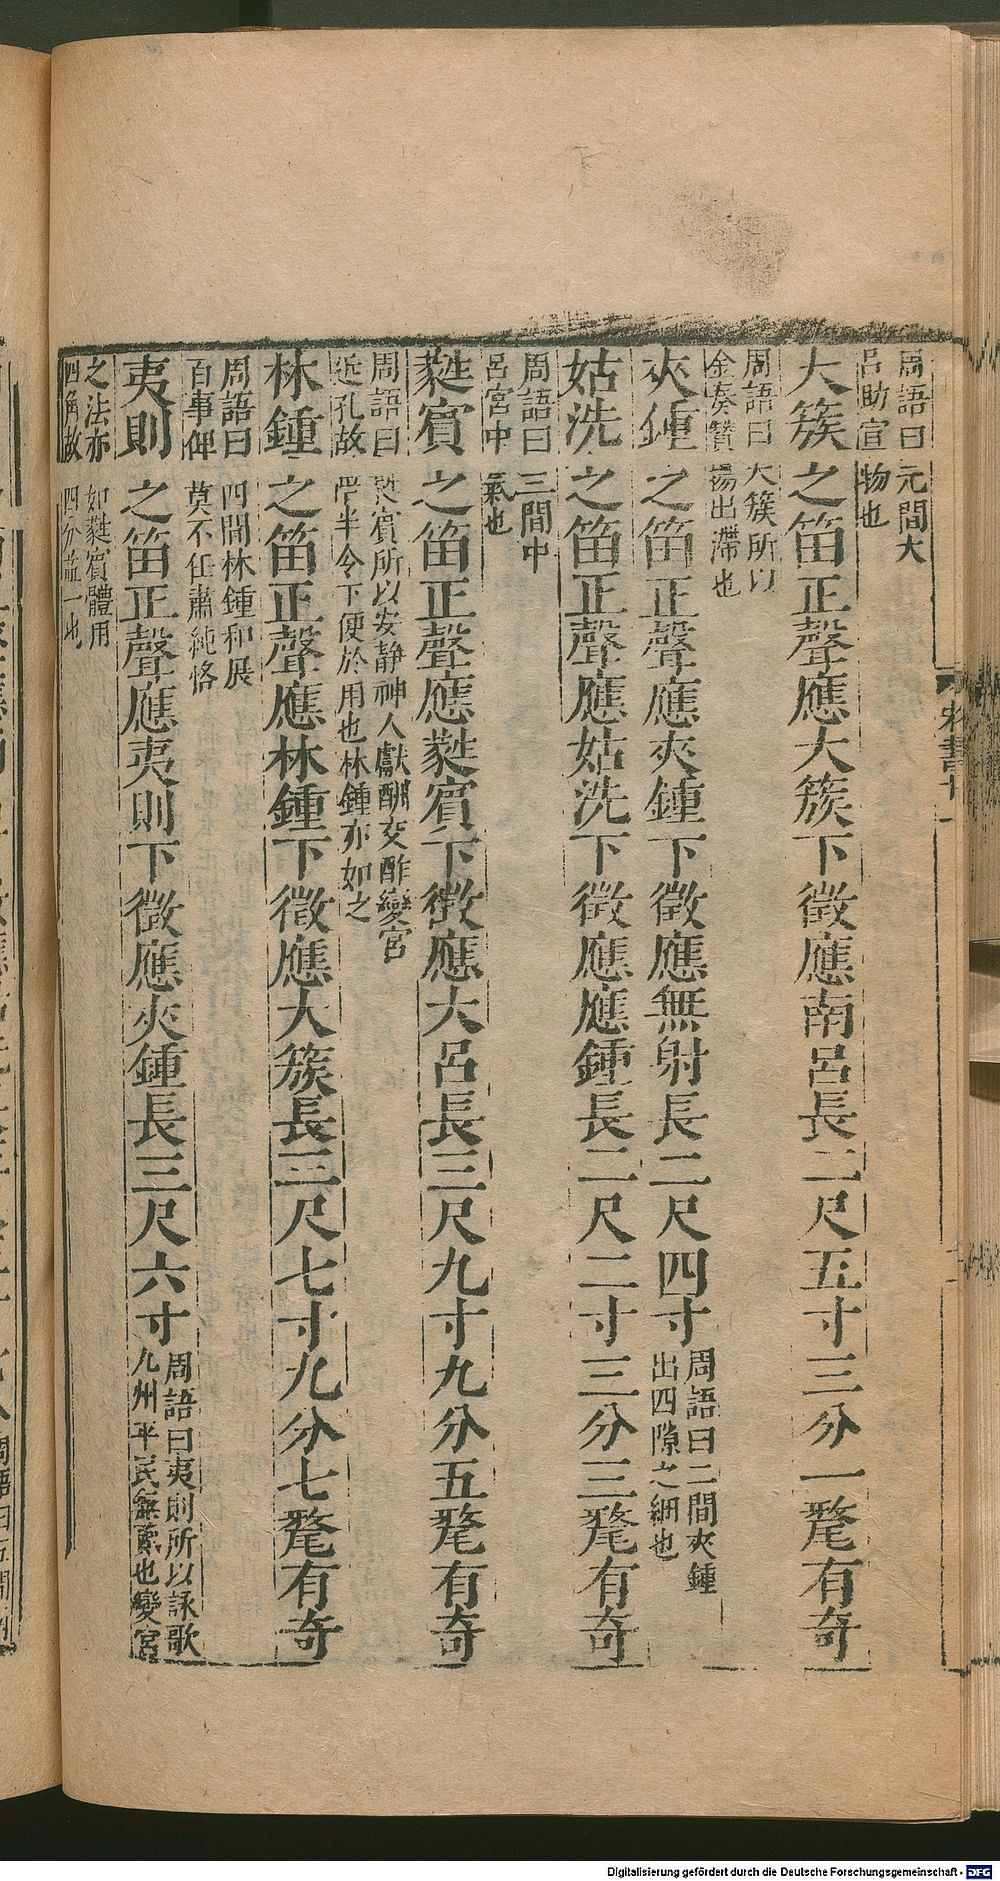 周語曰元間大
呂助宣物也
大簇之笛正聲應大簇下徵應南呂長二尺五寸三分一氂有奇
周語曰大簇所以
金奏贊揚出滯也
夾鍾之笛正聲應夾鍾下徵應無射長二尺四寸
周語曰二間夾鍾
出四隙之細也
姑洗之笛正聲應姑洗下徵應應鍾長二尺二寸三分三氂有奇
周語曰三間中
呂宮中氣也
蕤賓之笛正聲應蕤賓下徵應大呂長三尺九寸九分五氂有奇
周語曰蕤賓所以安静神人獻酬交酢變宮
近孔故倍半令下便於用也林鍾亦如之
林鍾之笛正聲應林鍾下徵應大簇長三尺七寸九分七氂有奇
周語曰四間林鍾和展
百事俾莫不任肅純恪
夷則之笛正聲應夷則下徵應夾鍾長三尺六寸
周語曰夷則所以詠歌
九州平民無貳也變宮
之法亦如蕤賓體用
四角故四分益一也
宋書十一
Digitalisierung gefördert durch die Deutsche Forschungsgemeinschaft - DFG